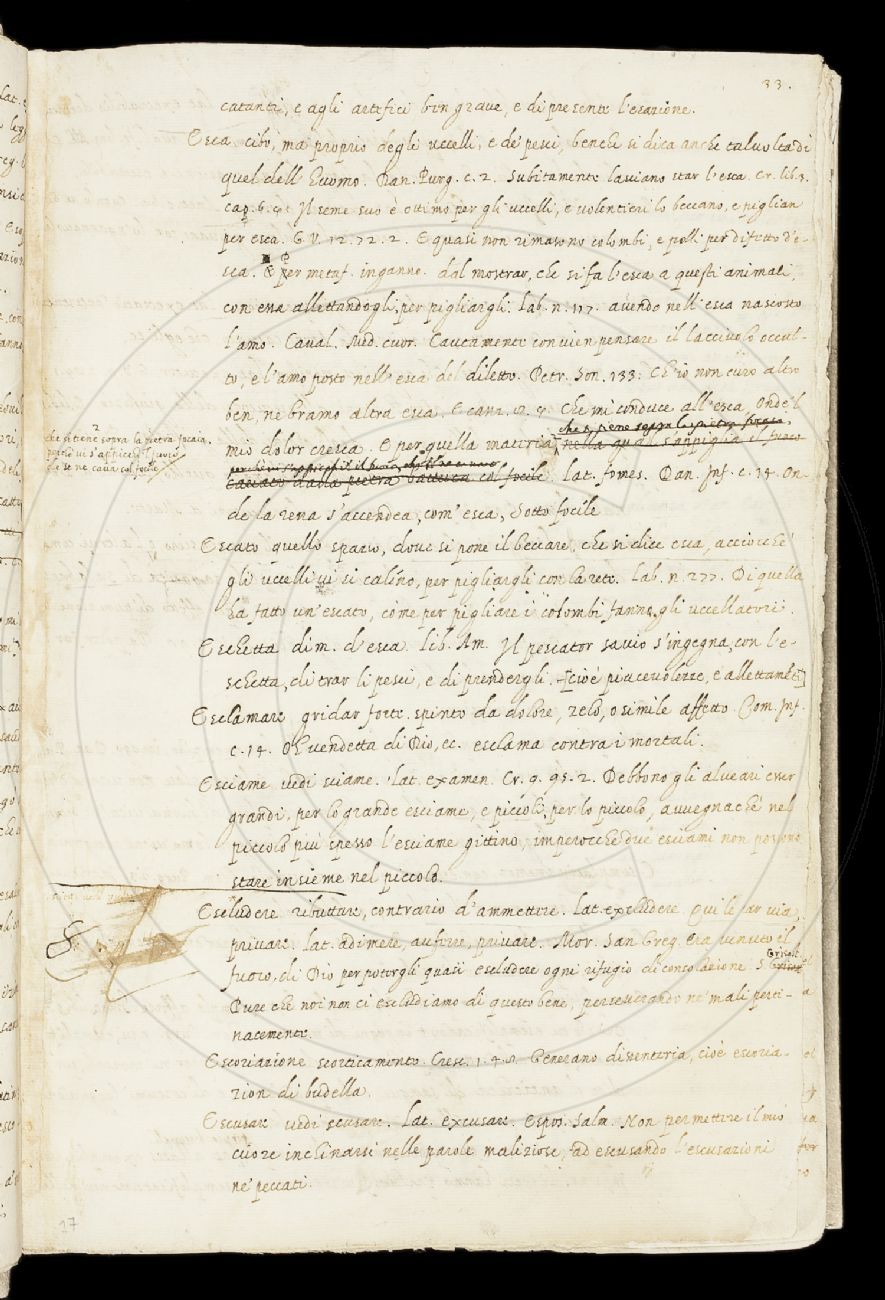 33.
catanti, e agli artefici ben grave, e di presente l'esazione.
Esca cibo, ma proprio degli uccelli, e de' pesci, benchè si dica anche talvolta di
quel dell' huomo. Dan. Purg. c. 2. Subitamente lasciano star l'esca. Cr. lib. 3.
cap. 6. Il seme suo è ottimo per gli uccelli, e volentieri lo beccano, e piglian
per esca. G. V. 12. 72. 2. E quasi non rimasono colombi, e polli per difetto d'e-
sca. E per metaf. inganno. dal mostrar, che si fa l'esca a questi animali,
con essa allettandogli, per pigliargli. Lab. n. 117. avendo nell' esca nascosto
l'amo. Caval. Med. cuor. Cautamente convien pensare il lacciuolo occul-
to, e l'amo posto nell' esca del diletto. Petr. Son. 133. Ch' io non curo altro
ben, ne bramo altra esca. E canz. Che mi conduce all' esca Onde 'l
che si tiene sopra la pietra focaia,
mio dolor cresca. E per quella materia, nella qual s'appiglia il fuoco
che si tiene sopra la pietra focaia,
perche vi s'appicchi il fuoco,
da se ne cava col focile
cavato dalla pietra battuta col focile. Lat. fomes. Dan. Inf. c. 14. On-
de la rena s'accendea, com' esca, Sotto focile
Escato quello spazio, dove si pone il beccare, che si dice esca, acciocchè
gli uccelli vi si calino, per pigliargli con la rete. Lab. n. 277. Di quella
ha fatto un' escato, come per pigliare i colombi fanno gli uccellatori.
Eschetta dim. d'esca. Lib. Am. Il pescator savio s'ingegna, con l'e-
schetta, di trar li pesci, e di prendergli. [cioè piacevolezze, e allettamti]
Esclamare gridar forte spinto da dolore, zelo, o simile affetto. Com. Inf.
c. 14. O vendetta di Dio, ec. esclama contra i mortali.
Esciame vedi sciame. Lat. examen. Cr. 9. 95. 2. Debbono gli alveari esser
grandi, per lo grande esciame, e piccioli, per lo piccolo, avvegnachè nel
piccolo più spesso l'esciame gittino, imperocchè due esciami non possono
stare insieme nel piccolo.
Escludere ributtare, contrario d'ammettere. Lat. excludere. Qui le far via,
privare. Lat. adimere, auferre, privare. Mor. San Greg. Era venuto il
fuoco, di Dio per potergli quasi escludere ogni rifugio di consolazione. S. Grisost.
Pure che noi non ci escludiamo di questo bene, perseverando ne' mali perti-
nacemente.
Escoriazione scorticamento. Cresc. 1. 4. 8. Generano dissenteria, cioè escoria-
zion di budella.
Escusare vedi scusare. Lat. excusare. Espos. Salm. Non permettere il mio
cuore inclinarsi nelle parole maliziose, ad escusando l'escusazioni
ne' peccati.
17